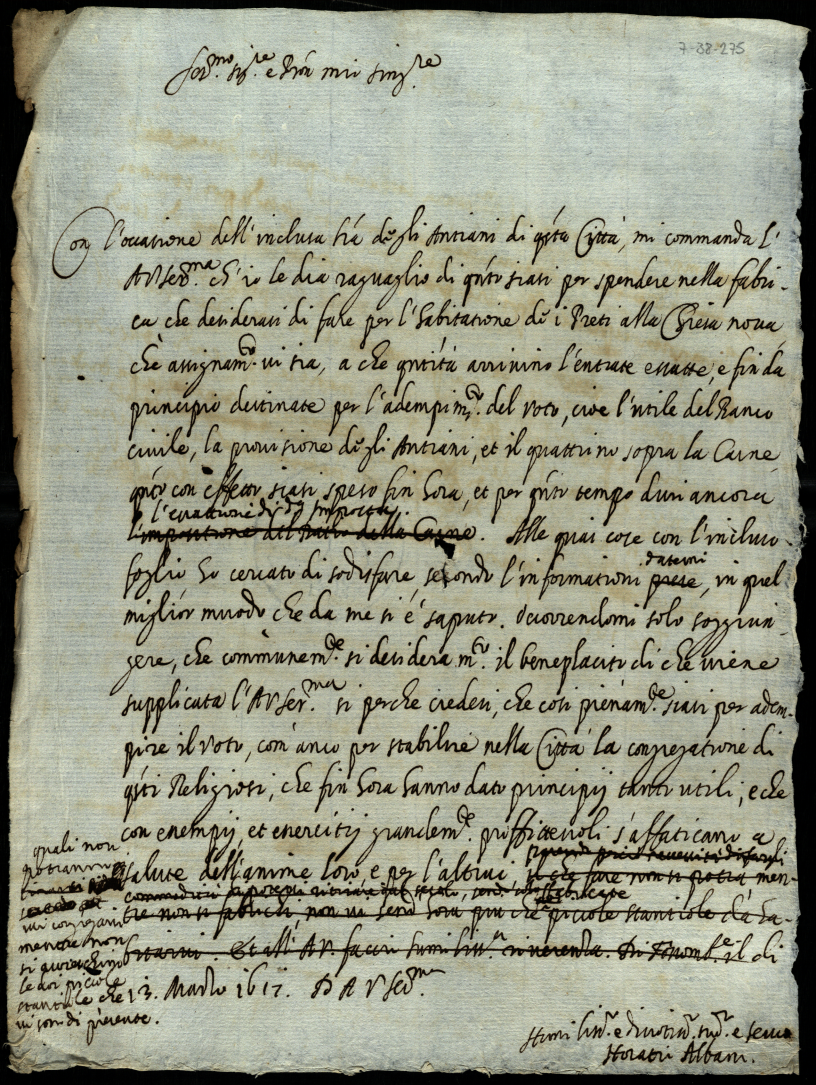 7-38-275
Ser.mo sig.re e Prõn mio sing.re
Con l'occasione dell'inclusa l'ra degli Antiani di q'sta Città, mi commanda l'
A V Ser.ma ch'io le dia raguaglio di q'nto siasi per spendere nella fabri-
ca che desiderasi di fare per l'habitatione de i Preti alla Chiesa nova
che assignam.to vi sia, a che q'ntità arrivino l'entrate esatte, e fin da
principio destinate per l'adempim.to del voto, cioe l'utile del Banco
civile, la provisione degli Antiani, et il quattrino sopra la Carne
q'nto con effetto siasi speso fin hora, et per q'nto tempo duri ancora
l'esattione di d.a Imposta
l'impositione del Datio della Carne. Alle quai cose con l'incluso
foglio ho cercato di sodisfare, secondo l'informationi datemi prese, in quel
miglior muodo che da me si è saputo. Occorrendomi solo soggiun-
gere, che communem.te si desidera m.to il beneplacito di che viene
supplicata l'A V Ser.ma si perche credesi, che cosi pienam.te siasi per adem-
pire il voto, com'anco per stabilire nella Città la congregatione di
q'sti Religiosi, che fin hora hanno dato principij tanto utili, e che
con esempij, et esercitij grandem.te profittevoli s'affaticano a
salute dell'anime loro, e per l'altrui, il che fare non si potrà men-
tre non si fabrichi, non vi send'hora piu che piccole stantiole da ha-
bitarvi. Et all'A V. faccio humiliss.a riverenza. Di il di
13. Marzo 1617. D A V Ser.ma
quali non
potranno
vi congregarsi
mentre non
le doi piciole
stantiole che
vi sono di presente.
Humiliss.o e divotiss.o sud.o e servo
Horatio Albani.